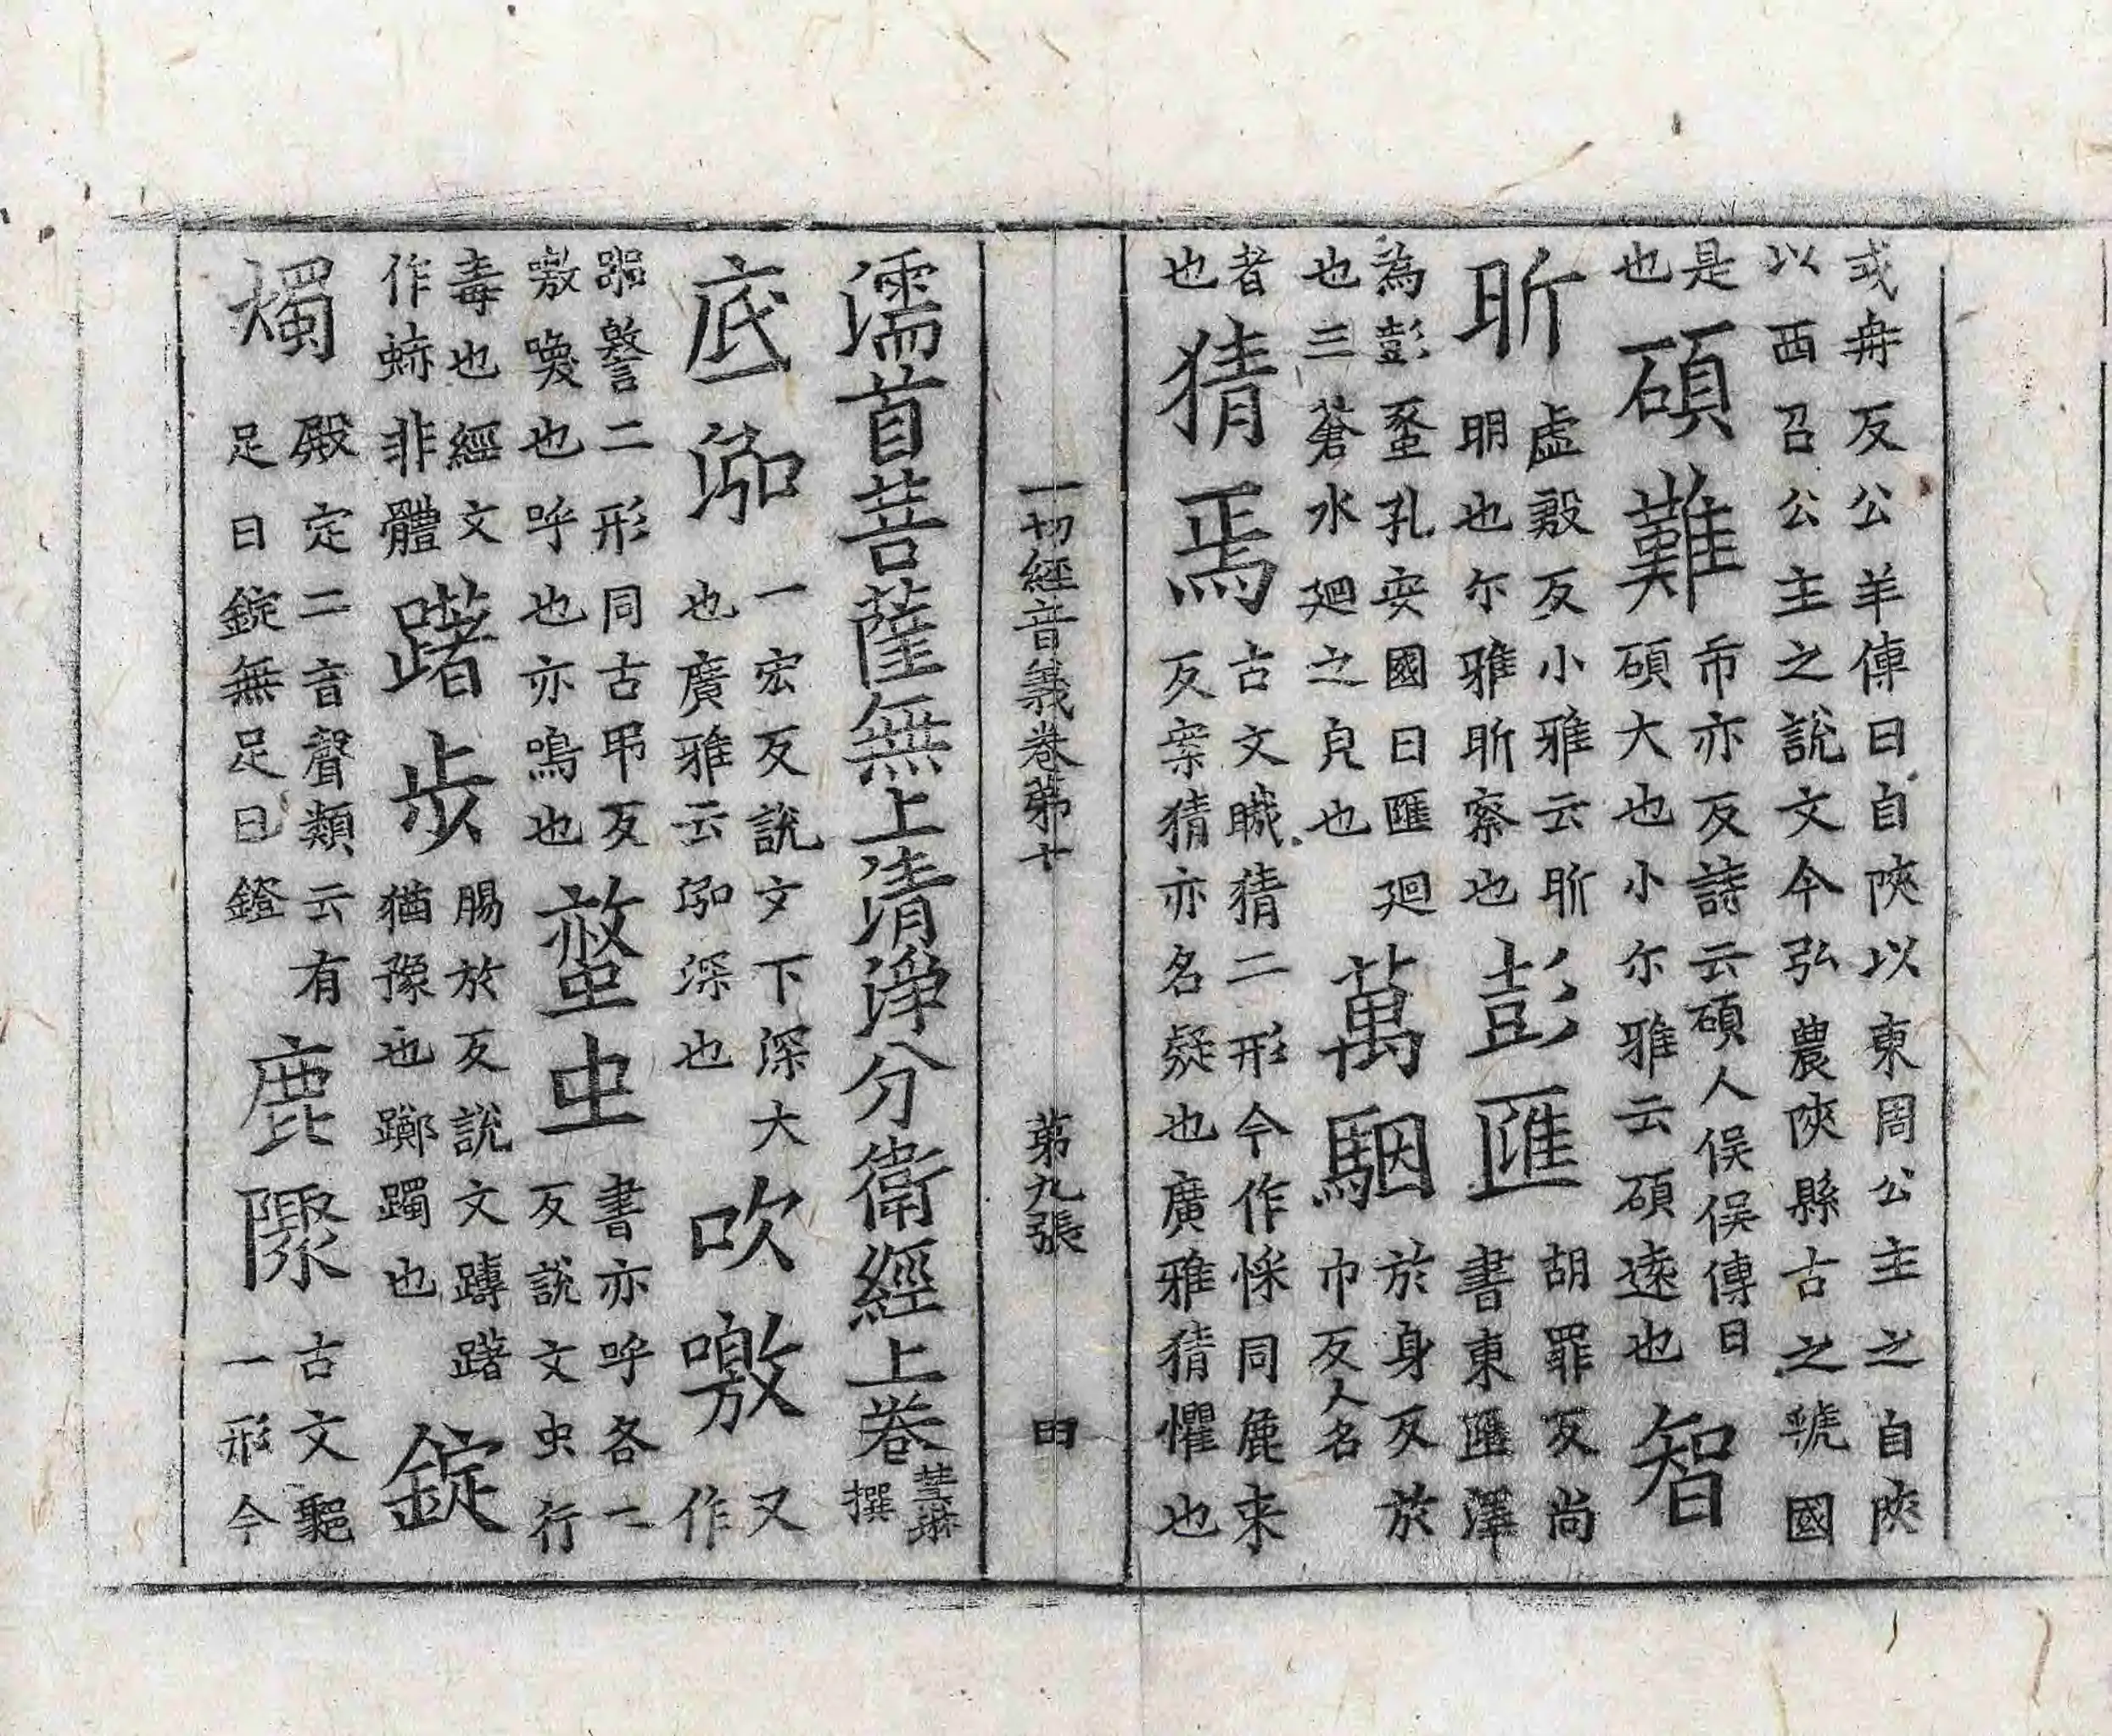 或冉反公羊傳曰自陝以東周公主之自陝
以西召公主之說文今弘農陝縣古之虢國
是也碩難市亦反詩云碩人俣俣傳曰
碩大也小尔雅云碩遠也智
昕虛殷反小雅云昕
明也尔雅昕察也彭匯胡罪反尚
書東匯澤
為彭蠡孔安國曰匯廻
也三蒼水廻之皃也萬駰於身反於
巾反人名
者
也猜焉古文䁍猜二形今作𢝔同麁来
反案猜亦名疑也廣雅猜懼也
一切經音義卷第十 第九張 田
濡首菩薩無上清淨分衛經上卷慧琳
撰
底泓一宏反說文下深大
也廣雅云泓深也吹噭又
作
嘂謷二形同古弔反
噭喚也呼也亦鳴也螫虫書亦呼各二
反說文虫行
毒也經文
作蛨非體躇步腸於反說文躊躇
猶豫也躑躅也錠
燭殿定二音聲類云有
足曰錠無足曰鐙麁隟古文𩳐
一形今